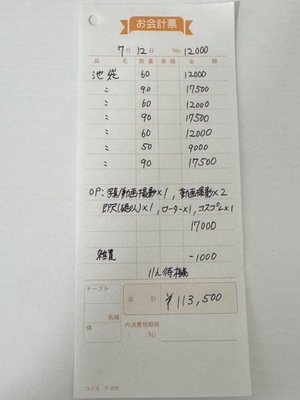 お会計票
7月12日 No. 12000
品名 数量 単価 金額
池袋 60 12000
〃 90 17500
〃 60 12000
〃 90 17500
〃 60 12000
〃 50 9000
〃 90 17500
OP: 写真/動画撮影×1, 動画撮影×2
即尺(絶×1, ローター×1, コスプレ×1
17000
雑費 -1000
11人
テーブル
合計 ¥113,500
名様
係
内消費税額等
(%)